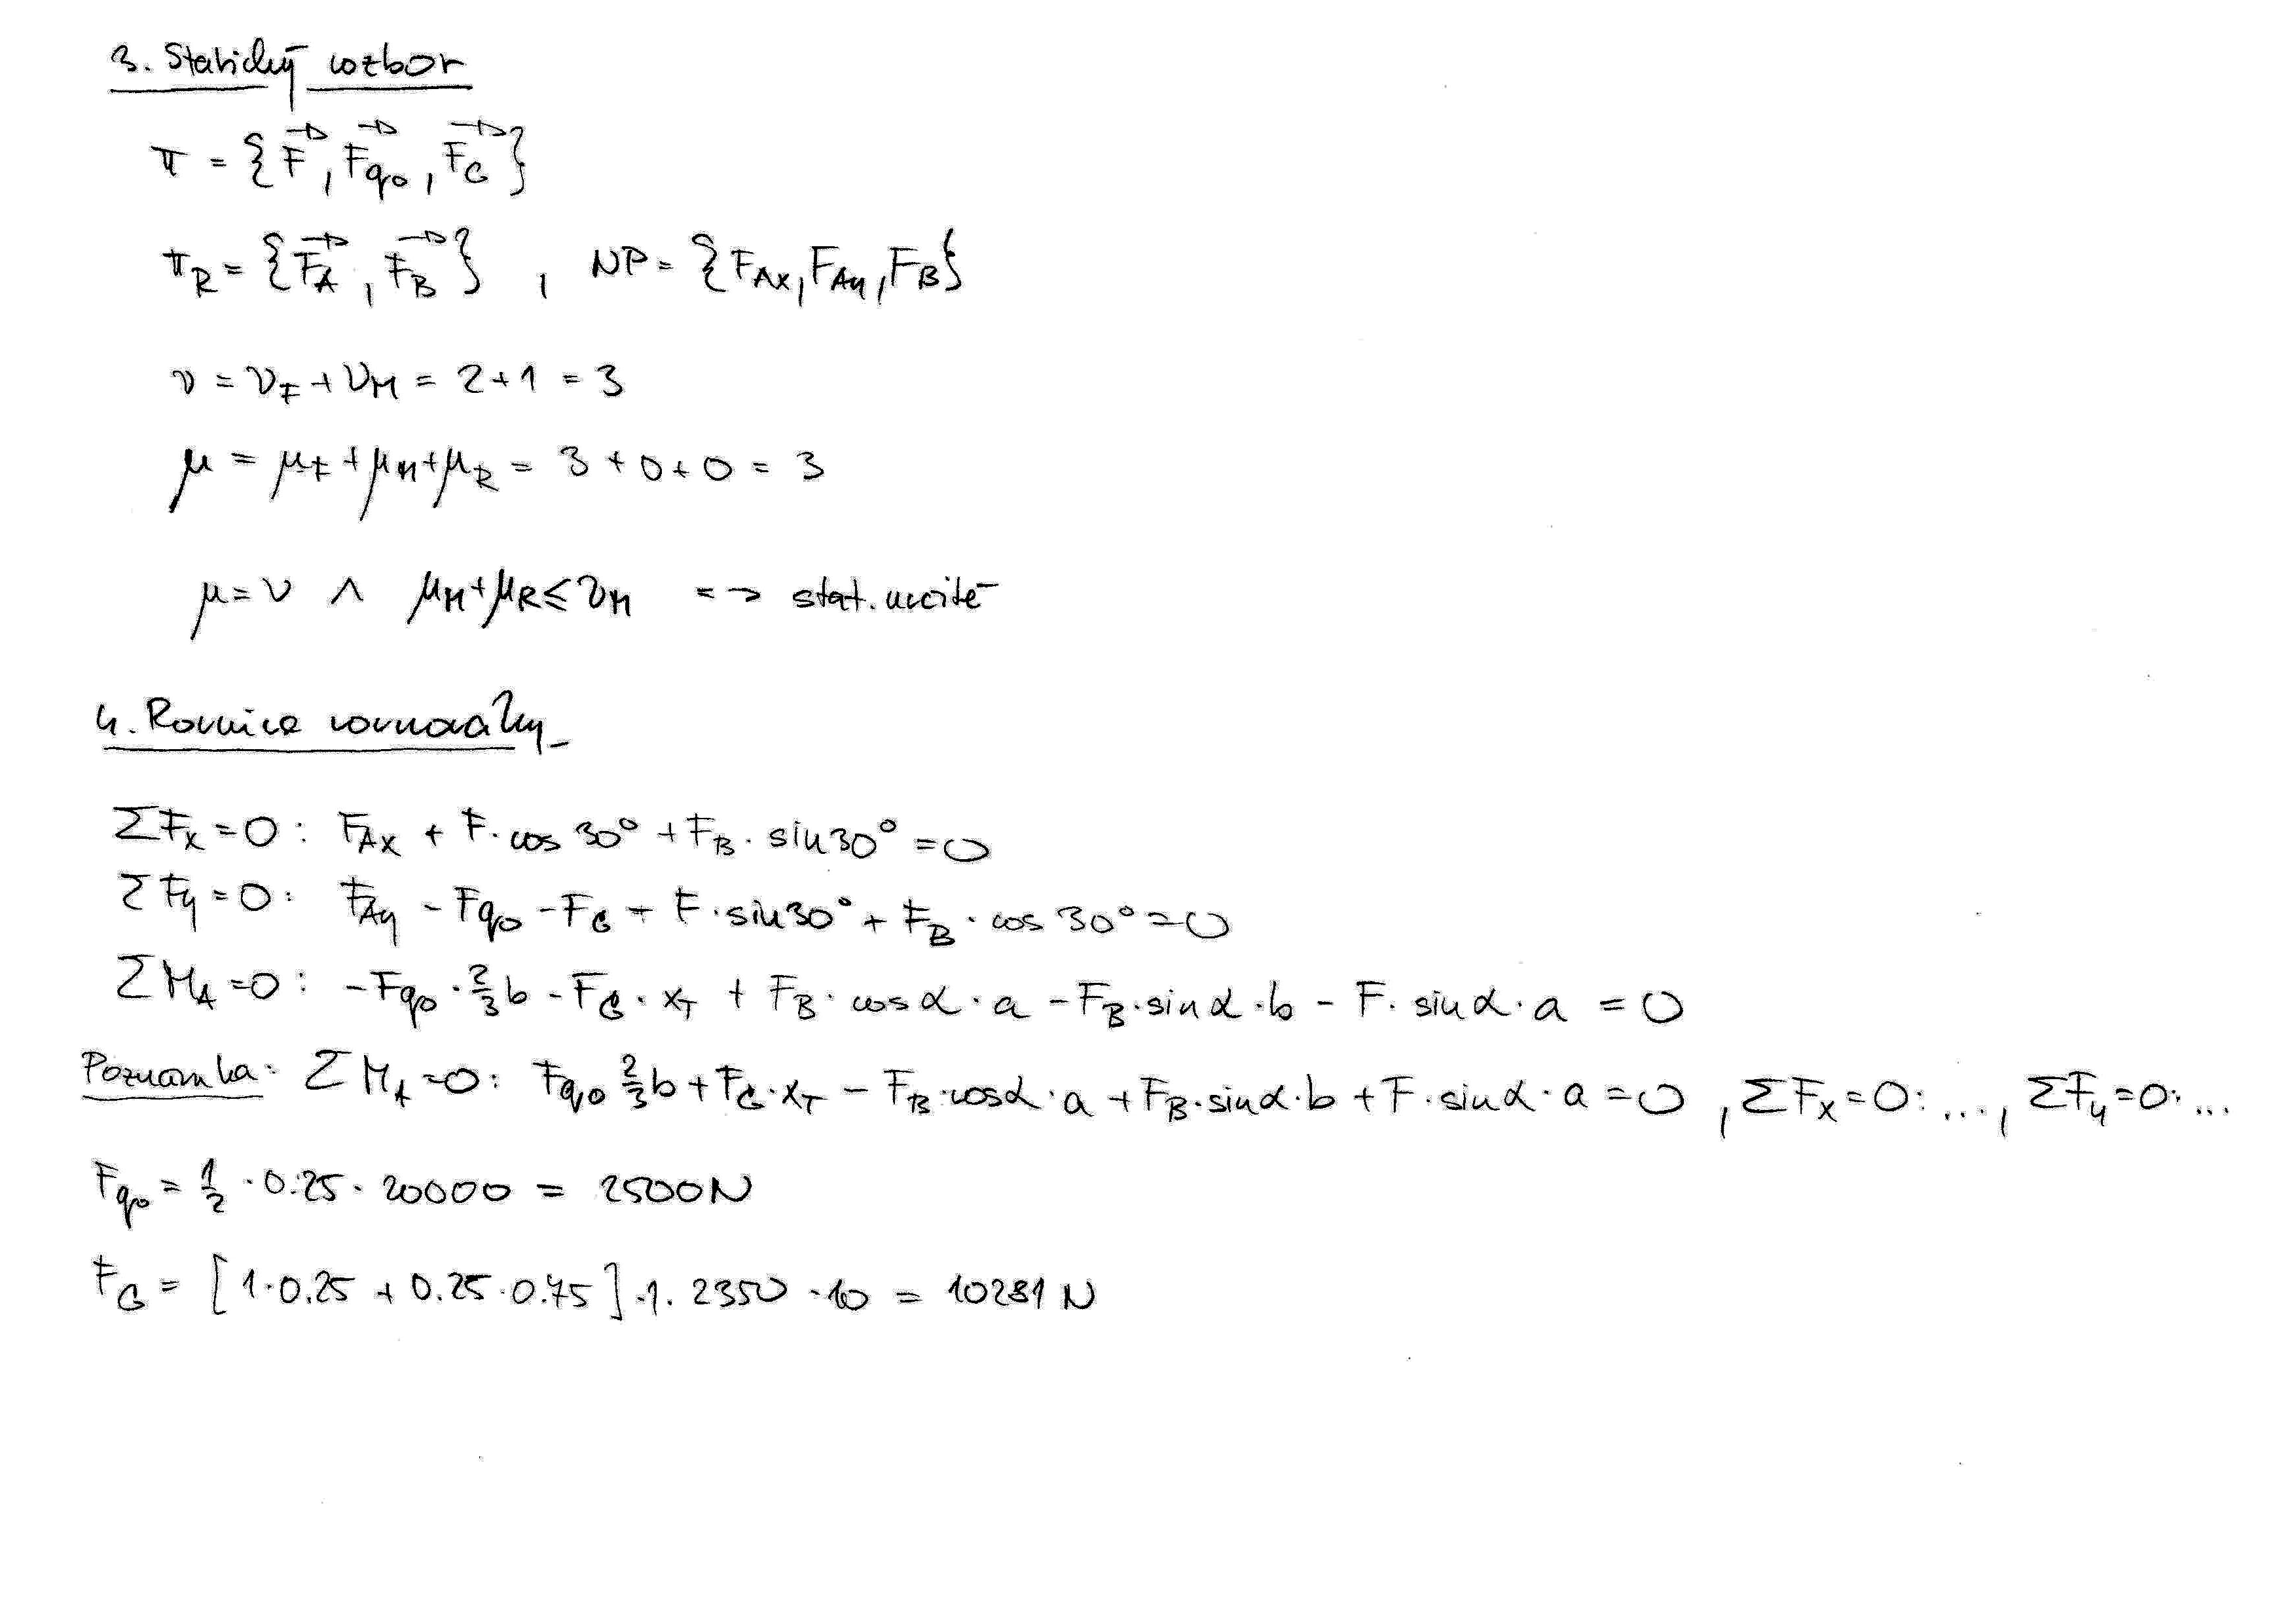 3. Statický rozbor
π = {F⃗, F⃗q₀, F⃗G}
π_R = {F⃗A, F⃗B} , NP = {F_Ax, F_Ay, F_B}
ν = ν_F + ν_M = 2+1 = 3
μ = μ_F + μ_M + μ_R = 3 + 0 + 0 = 3
μ = ν ∧ μ_M + μ_R ≤ ν_M => stat. určité
4. Rovnice rovnováhy
ΣF_x = 0 : F_Ax + F · cos 30° + F_B · sin 30° = 0
ΣF_y = 0 : F_Ay - F_q₀ - F_G - F · sin 30° + F_B · cos 30° = 0
ΣM_A = 0 : -F_q₀ · 2/3 b - F_G · x_T + F_B · cos α · a - F_B · sin α · b - F · sin α · a = 0
Poznámka: ΣM_A = 0 : F_q₀ 2/3 b + F_G · x_T - F_B · cos α · a + F_B · sin α · b + F · sin α · a = 0 , ΣF_x = 0 : ..., ΣF_y = 0 : ...
F_q₀ = 1/2 · 0.25 · 20000 = 2500 N
F_G = [1 · 0.25 + 0.25 · 0.75] · 1 · 2350 · 10 = 10281 N